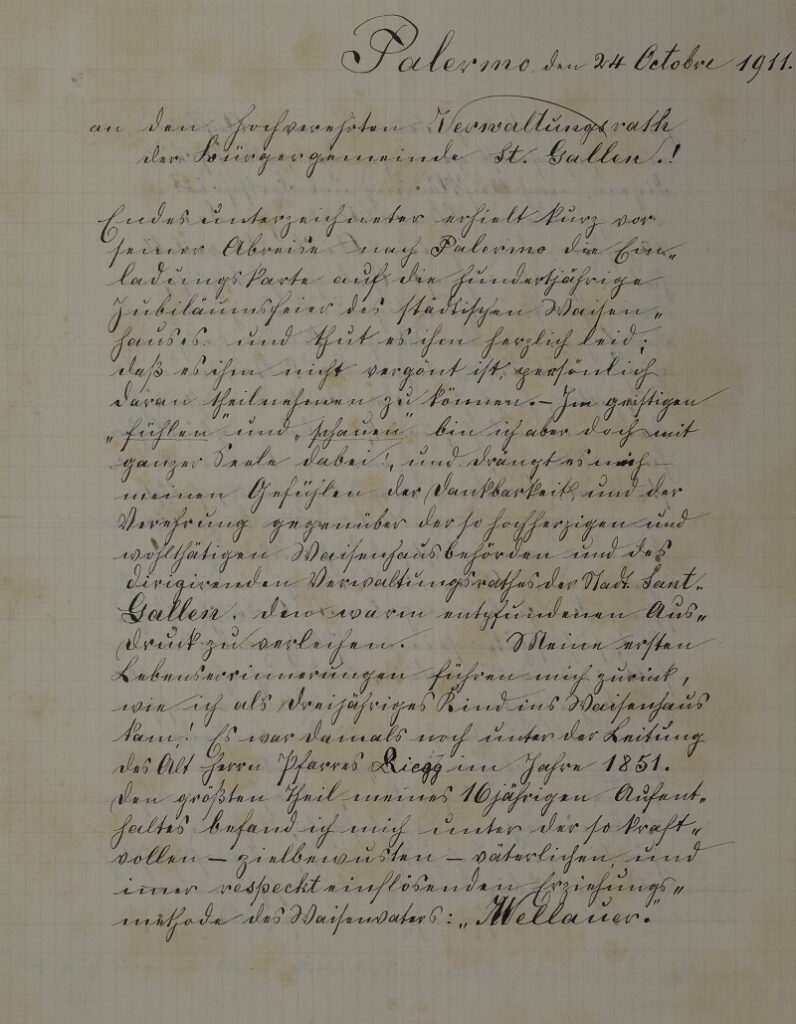 Palermo den 24 Octobre 1911.
an den hochverehrten Verwaltungsrath
der Bürgergemeinde St. Gallen.!
Endesunterzeichneter erhielt kurz vor
seiner Abreise nach Palermo die Ein-
ladungskarte auf die hundertjährige
Jubiläumsfeier des städtischen Waisen-
hauses. und thut es ihm herzlich leid;
daß es ihm nicht vergönt ist, persönlich
daran theilnehmen zu können. – Im geistigen
„fühlen" und „schauen" bin ich aber doch mit
ganzer Seele dabei!, und drängt es mich
meinen Gefühlen der Dankbarkeit, und der
Verehrung gegenüber der so hochherzigen und
wohlthätigen Waisenhausbehörden und des
dirigirenden Verwaltungsrathes der Stadt Sant-
Gallen. den warm entpfundenen Aus-
druck zu verleihen. Meine ersten
Lebenserrinnerungen führen mich zurück,
wie ich als dreijähriges Kind ins Waisenhaus
kam! Es war damals noch unter der Leitung
des Alt Herrn Pfarres Riegg im Jahre 1851.
Den größten Theil meines 16jährigen Aufent-
haltes befand ich mich unter der so kraft-
vollen – zielbewusten – väterlichen, und
imer respeckt einflösenden Erziehungs-
methode des Waisenvaters: „Wellauer."